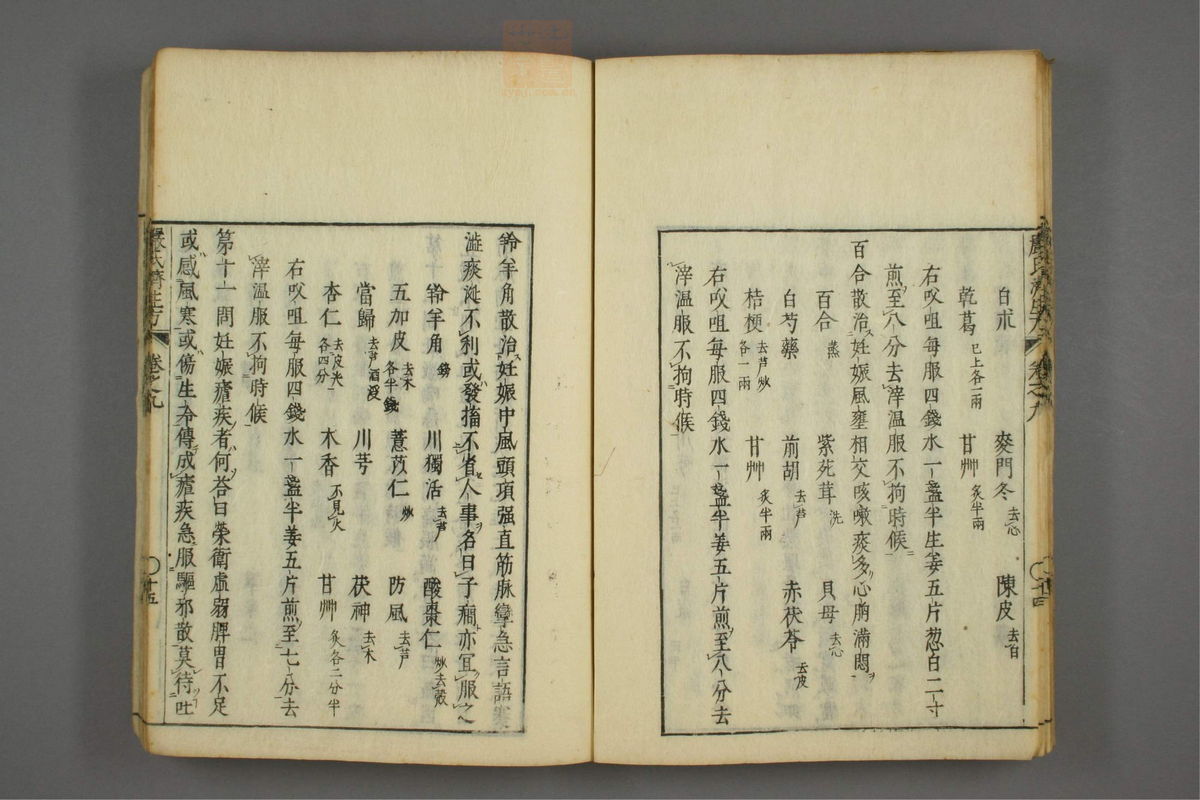 白朮 麥門冬去心 陳皮去白
乾葛已上各一兩 甘艸炙半兩
右㕮咀每服四錢水一盞半生姜五片葱白二寸
煎至八分去滓温服不拘時候
百合散治妊娠風壅相交咳嗽痰多心胷滿悶
百合蒸 紫菀茸洗 貝母去心
白芍藥 前胡去芦 赤茯苓去皮
桔梗去芦炒各一兩 甘艸炙半兩
右㕮咀每服四錢水一盞半姜五片煎至八分去
滓温服不拘時候
嚴氏濟生方 卷之九 廿四
羚羊角散治妊娠中風頭項强直筋脉攣急言語蹇
澁痰涎不利或發搐不省人事名曰子癎亦冝服之
羚羊角鎊 川獨活去芦 酸棗仁炒去殼
五加皮去木各半錢 薏苡仁炒 防風去芦
當歸去芦酒浸 川芎 茯神去木
杏仁去皮尖各四分 木香不見火 甘艸炙各二分半
右㕮咀每服四錢水一盞半姜五片煎至七分去
滓温服不拘時候
第十一問妊娠瘧疾者何荅曰榮衛虚弱脾胃不足
或感風寒或傷生冷傳成瘧疾急服驅邪散莫待吐
嚴氏濟生方 卷之九 廿五